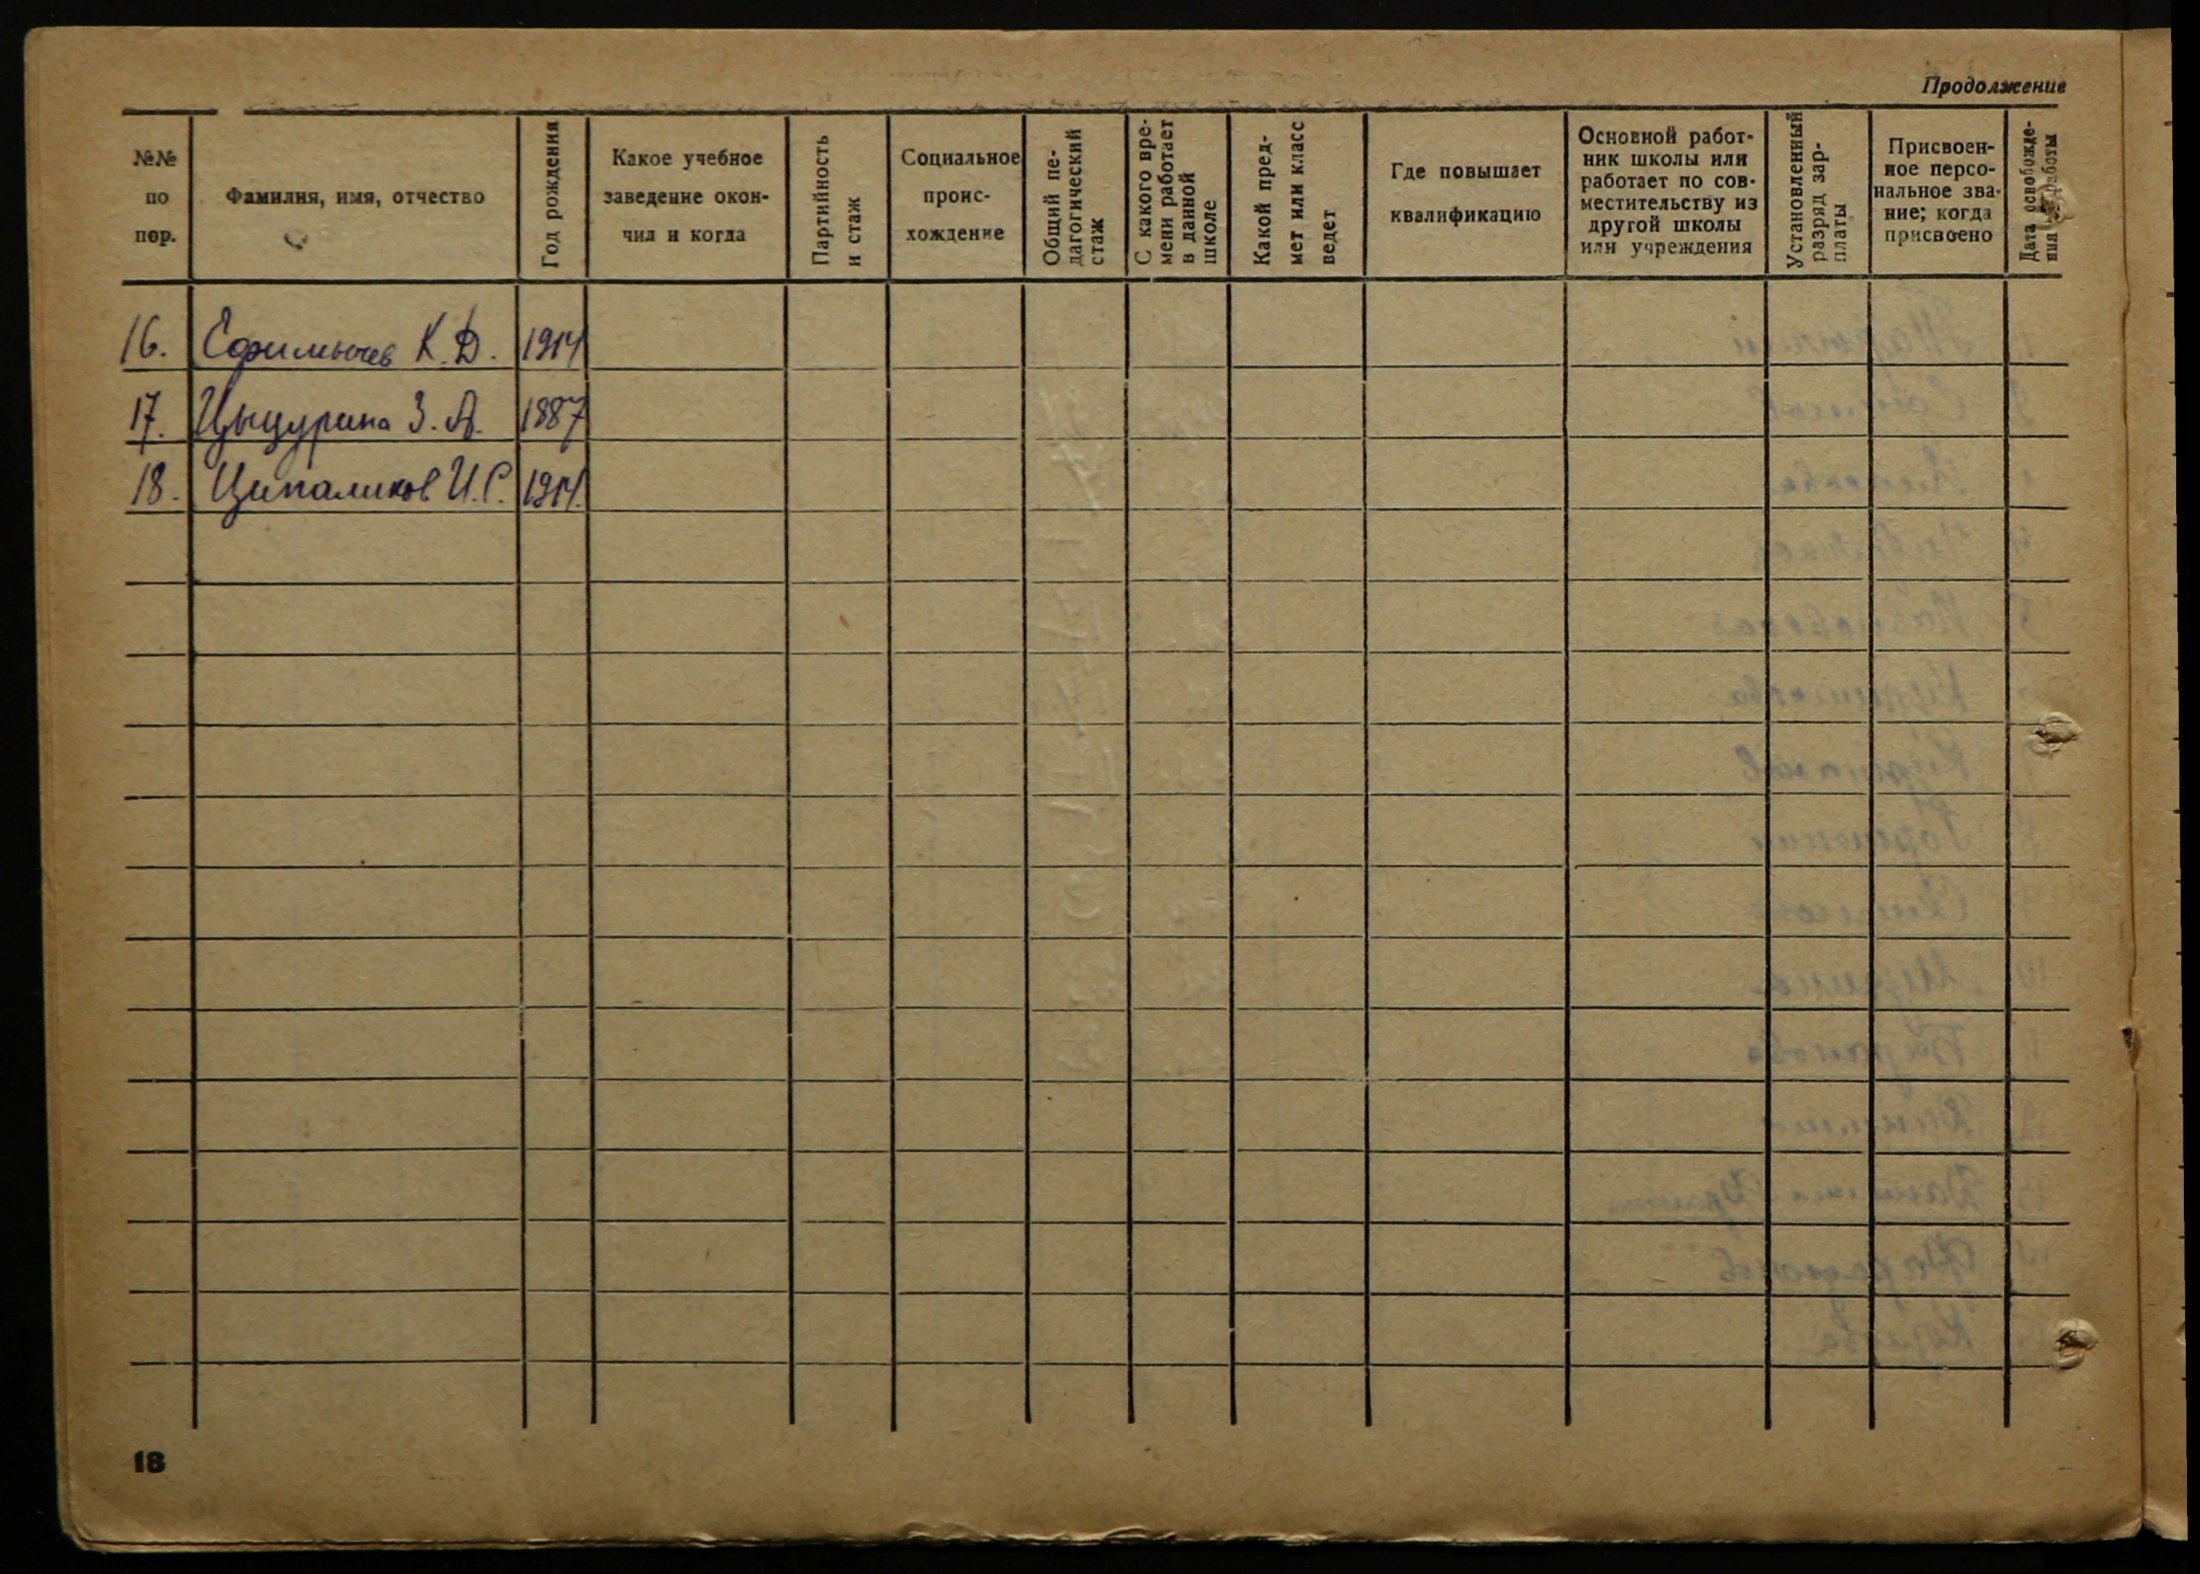 Продолжение
№№ по пор.
Фамилия, имя, отчество
Год рождения
Какое учебное заведение окон-
чил и когда
Партийность и стаж
Социальное проис-
хождение
Общий пе-
дагогический
стаж
С какого вре-
мени работает
в данной
школе
Какой пред-
мет или класс
ведет
Где повышает
квалификацию
Основной работ-
ник школы или
работает по сов-
местительству из
другой школы
или учреждения
Установленный
разряд зар-
платы
Присвоен-
ное персо-
нальное зва-
ние; когда
присвоено
Дата освобожде-
ния работы
16. Ефимычев К. Д. 1914
17. Цыцурина З. А. 1887
18. Ципаликов И. С. 1914.
18